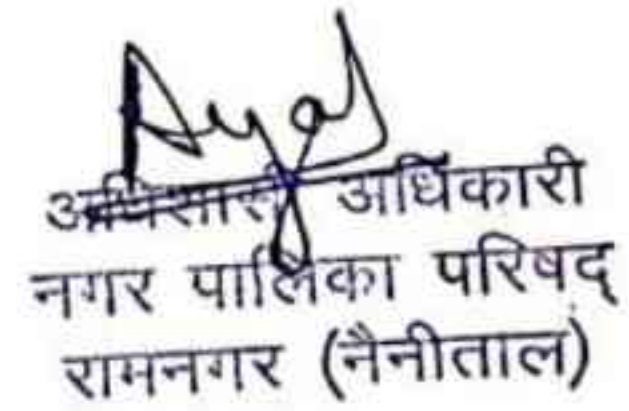 अधिसासी अधिकारी
नगर पालिका परिषद्
रामनगर (नैनीताल)